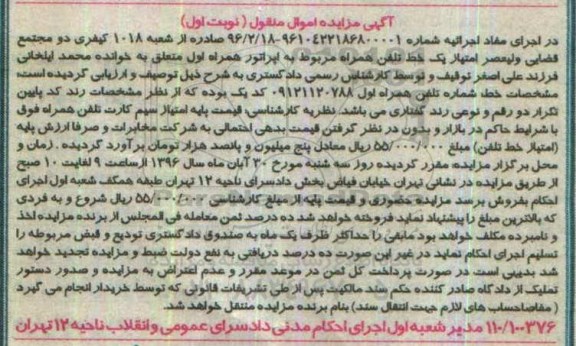 آگهی مزایده اموال منقول ( نوبت اول )
در اجرای مفاد اجرائیه شماره ۹۶۱۰۴۲۲۱۸۶۸۰۰۰۰۱-۹۶/۲/۱۸ صادره از شعبه ۱۰۱۸ کیفری دو مجتمع
قضایی ولیعصر امتیاز یک خط تلفن همراه مربوط به اپراتور همراه اول متعلق به خوانده محمد ایلخانی
فرزند علی اصغر توقیف و توسط کارشناس رسمی دادگستری به شرح ذیل توصیف و ارزیابی گردیده است:
مشخصات خط: شماره تلفن همراه اول ۰۹۱۲۱۱۲۰۷۸۸ کد یک بوده که از نظر مشخصات رند کد پایین
تکرار دو رقم و نوعی رند گفتاری می باشد. نظریه کارشناسی: قیمت پایه امتیاز سیم کارت تلفن همراه فوق
با شرایط حاکم در بازار و بدون در نظر گرفتن قیمت بدهی احتمالی به شرکت مخابرات و صرفا ارزش پایه
(امتیاز خط تلفن) مبلغ ۵۵/۰۰۰/۰۰۰ ریال معادل پنج میلیون و پانصد هزار تومان برآورد گردیده . زمان و
محل برگزار مزایده: مقرر گردیده روز سه شنبه مورخ ۳۰ آبان ماه سال ۱۳۹۶ ازساعت ۹ لغایت ۱۰ صبح
از طریق مزایده در نشانی تهران خیابان فیاض بخش دادسرای ناحیه ۱۲ تهران طبقه همکف شعبه اول اجرای
احکام بفروش برسد مزایده حضوری و قیمت پایه از مبلغ کارشناسی ۵۵/۰۰۰/۰۰۰ ریال شروع و به فردی
که بالاترین مبلغ را پیشنهاد نماید فروخته خواهد شد ده درصد ثمن معامله فی المجلس از برنده مزایده اخذ
و نامبرده مکلف خواهد بود مابقی را حداکثر ظرف یک ماه به صندوق دادگستری تودیع و قبض مربوطه را
تسلیم اجرای احکام نماید در غیر این صورت ده درصد دریافتی به نفع دولت ضبط و مزایده تجدید خواهد
شد بدیهی است در صورت پرداخت کل ثمن در موعد مقرر و عدم اعتراض به مزایده و صدور دستور
تملیک از دادگاه صادر کننده حکم سند مالکیت پس از طی تشریفات قانونی که توسط خریدار انجام می گیرد
( مفاصاحساب های لازم جهت انتقال سند) بنام برنده مزایده منتقل خواهد شد.
۱۱۰/۱۰۰۳۷۶ مدیر شعبه اول اجرای احکام مدنی دادسرای عمومی و انقلاب ناحیه ۱۲ تهران